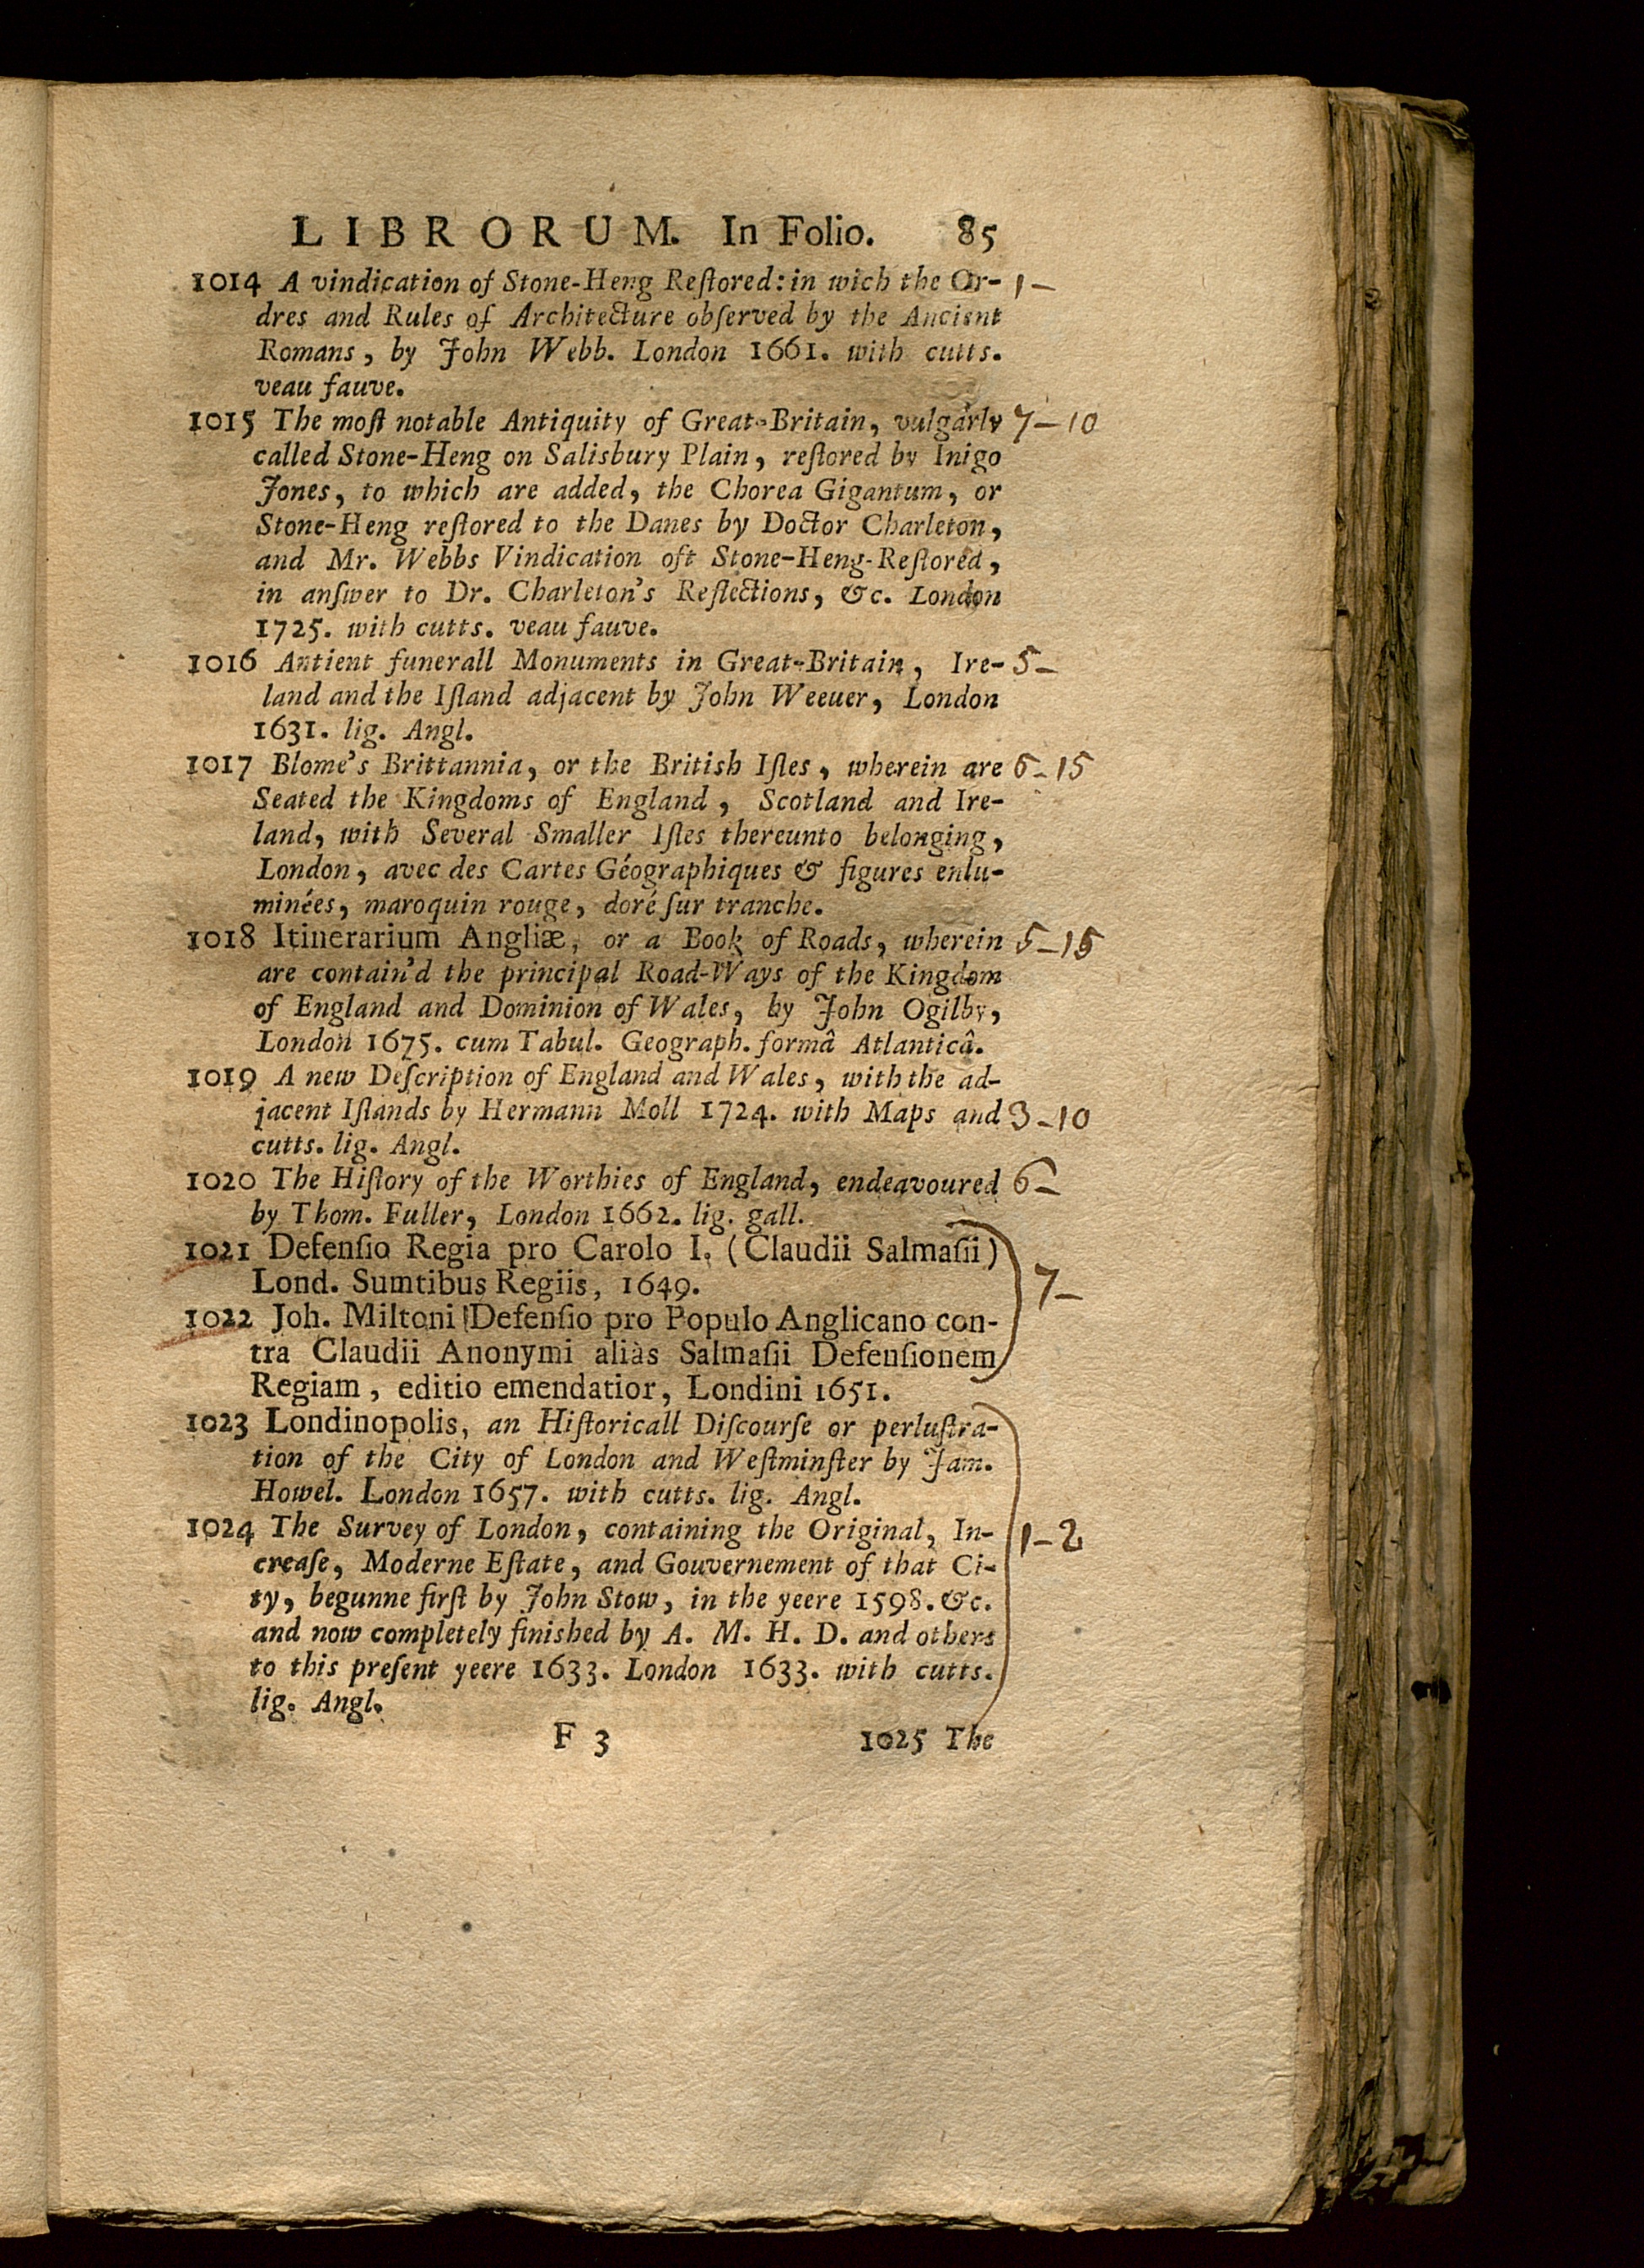 LIBRORUM. In Folio. 85
1014 A vindication of Stone-Heng Reſtored: in wich the Or- 1 –
dres and Rules of Architecture obſerved by the Ancient
Romans, by John Webb. London 1661. with cutts.
veau fauve.
1015 The moſt notable Antiquity of Great-Britain, vulgarly 7 – 10
called Stone-Heng on Salisbury Plain, reſtored by Inigo
Jones, to which are added, the Chorea Gigantum, or
Stone-Heng reſtored to the Danes by Doctor Charleton,
and Mr. Webbs Vindication oft Stone-Heng-Reſtored,
in anſwer to Dr. Charleton's Reflections, &c. London
1725. with cutts. veau fauve.
1016 Antient funerall Monuments in Great-Britain, Ire- 5 –
land and the Iſland adjacent by John Weeuer, London
1631. lig. Angl.
1017 Blome's Brittannia, or the British Iſles, wherein are 6 – 15
Seated the Kingdoms of England, Scotland and Ire-
land, with Several Smaller Iſles thereunto belonging,
London, avec des Cartes Géographiques & figures enlu-
minées, maroquin rouge, doré ſur tranche.
1018 Itinerarium Angliæ, or a Book of Roads, wherein 5 – 15
are contain'd the principal Road-Ways of the Kingdom
of England and Dominion of Wales, by John Ogilby,
London 1675. cum Tabul. Geograph. formâ Atlanticâ.
1019 A new Deſcription of England and Wales, with the ad-
jacent Iſlands by Hermann Moll 1724. with Maps and 3 – 10
cutts. lig. Angl.
1020 The Hiſtory of the Worthies of England, endeavoured 6 –
by Thom. Fuller, London 1662. lig. gall.
1021 Defenſio Regia pro Carolo I. (Claudii Salmaſii)
Lond. Sumtibus Regiis, 1649. 7 –
1022 Joh. Miltoni Defenſio pro Populo Anglicano con-
tra Claudii Anonymi aliàs Salmaſii Defenſionem
Regiam, editio emendatior, Londini 1651.
1023 Londinopolis, an Hiſtoricall Diſcourſe or perluſtra-
tion of the City of London and Weſtminſter by Jam.
Howel. London 1657. with cutts. lig. Angl.
1024 The Survey of London, containing the Original, In- 1 – 2
creaſe, Moderne Eſtate, and Gouvernement of that Ci-
ty, begunne firſt by John Stow, in the yeere 1598. &c.
and now completely finished by A. M. H. D. and others
to this preſent yeere 1633. London 1633. with cutts.
lig. Angl.
F 3 1025 The